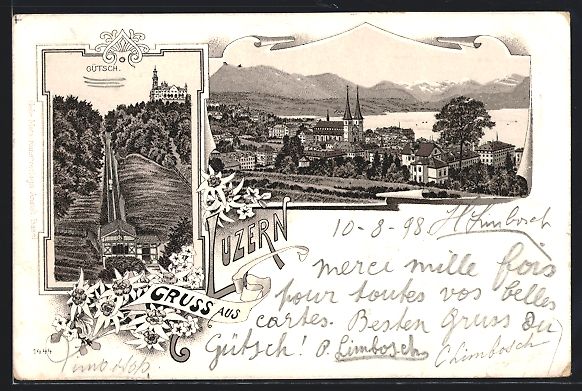 GÜTSCH.
LUZERN
GRUSS AUS
10-8-98 H Limbosch
merci mille fois
pour toutes vos belles
cartes. Besten Gruss du
Gütsch! P. Limbosch
C Limbosch
1644